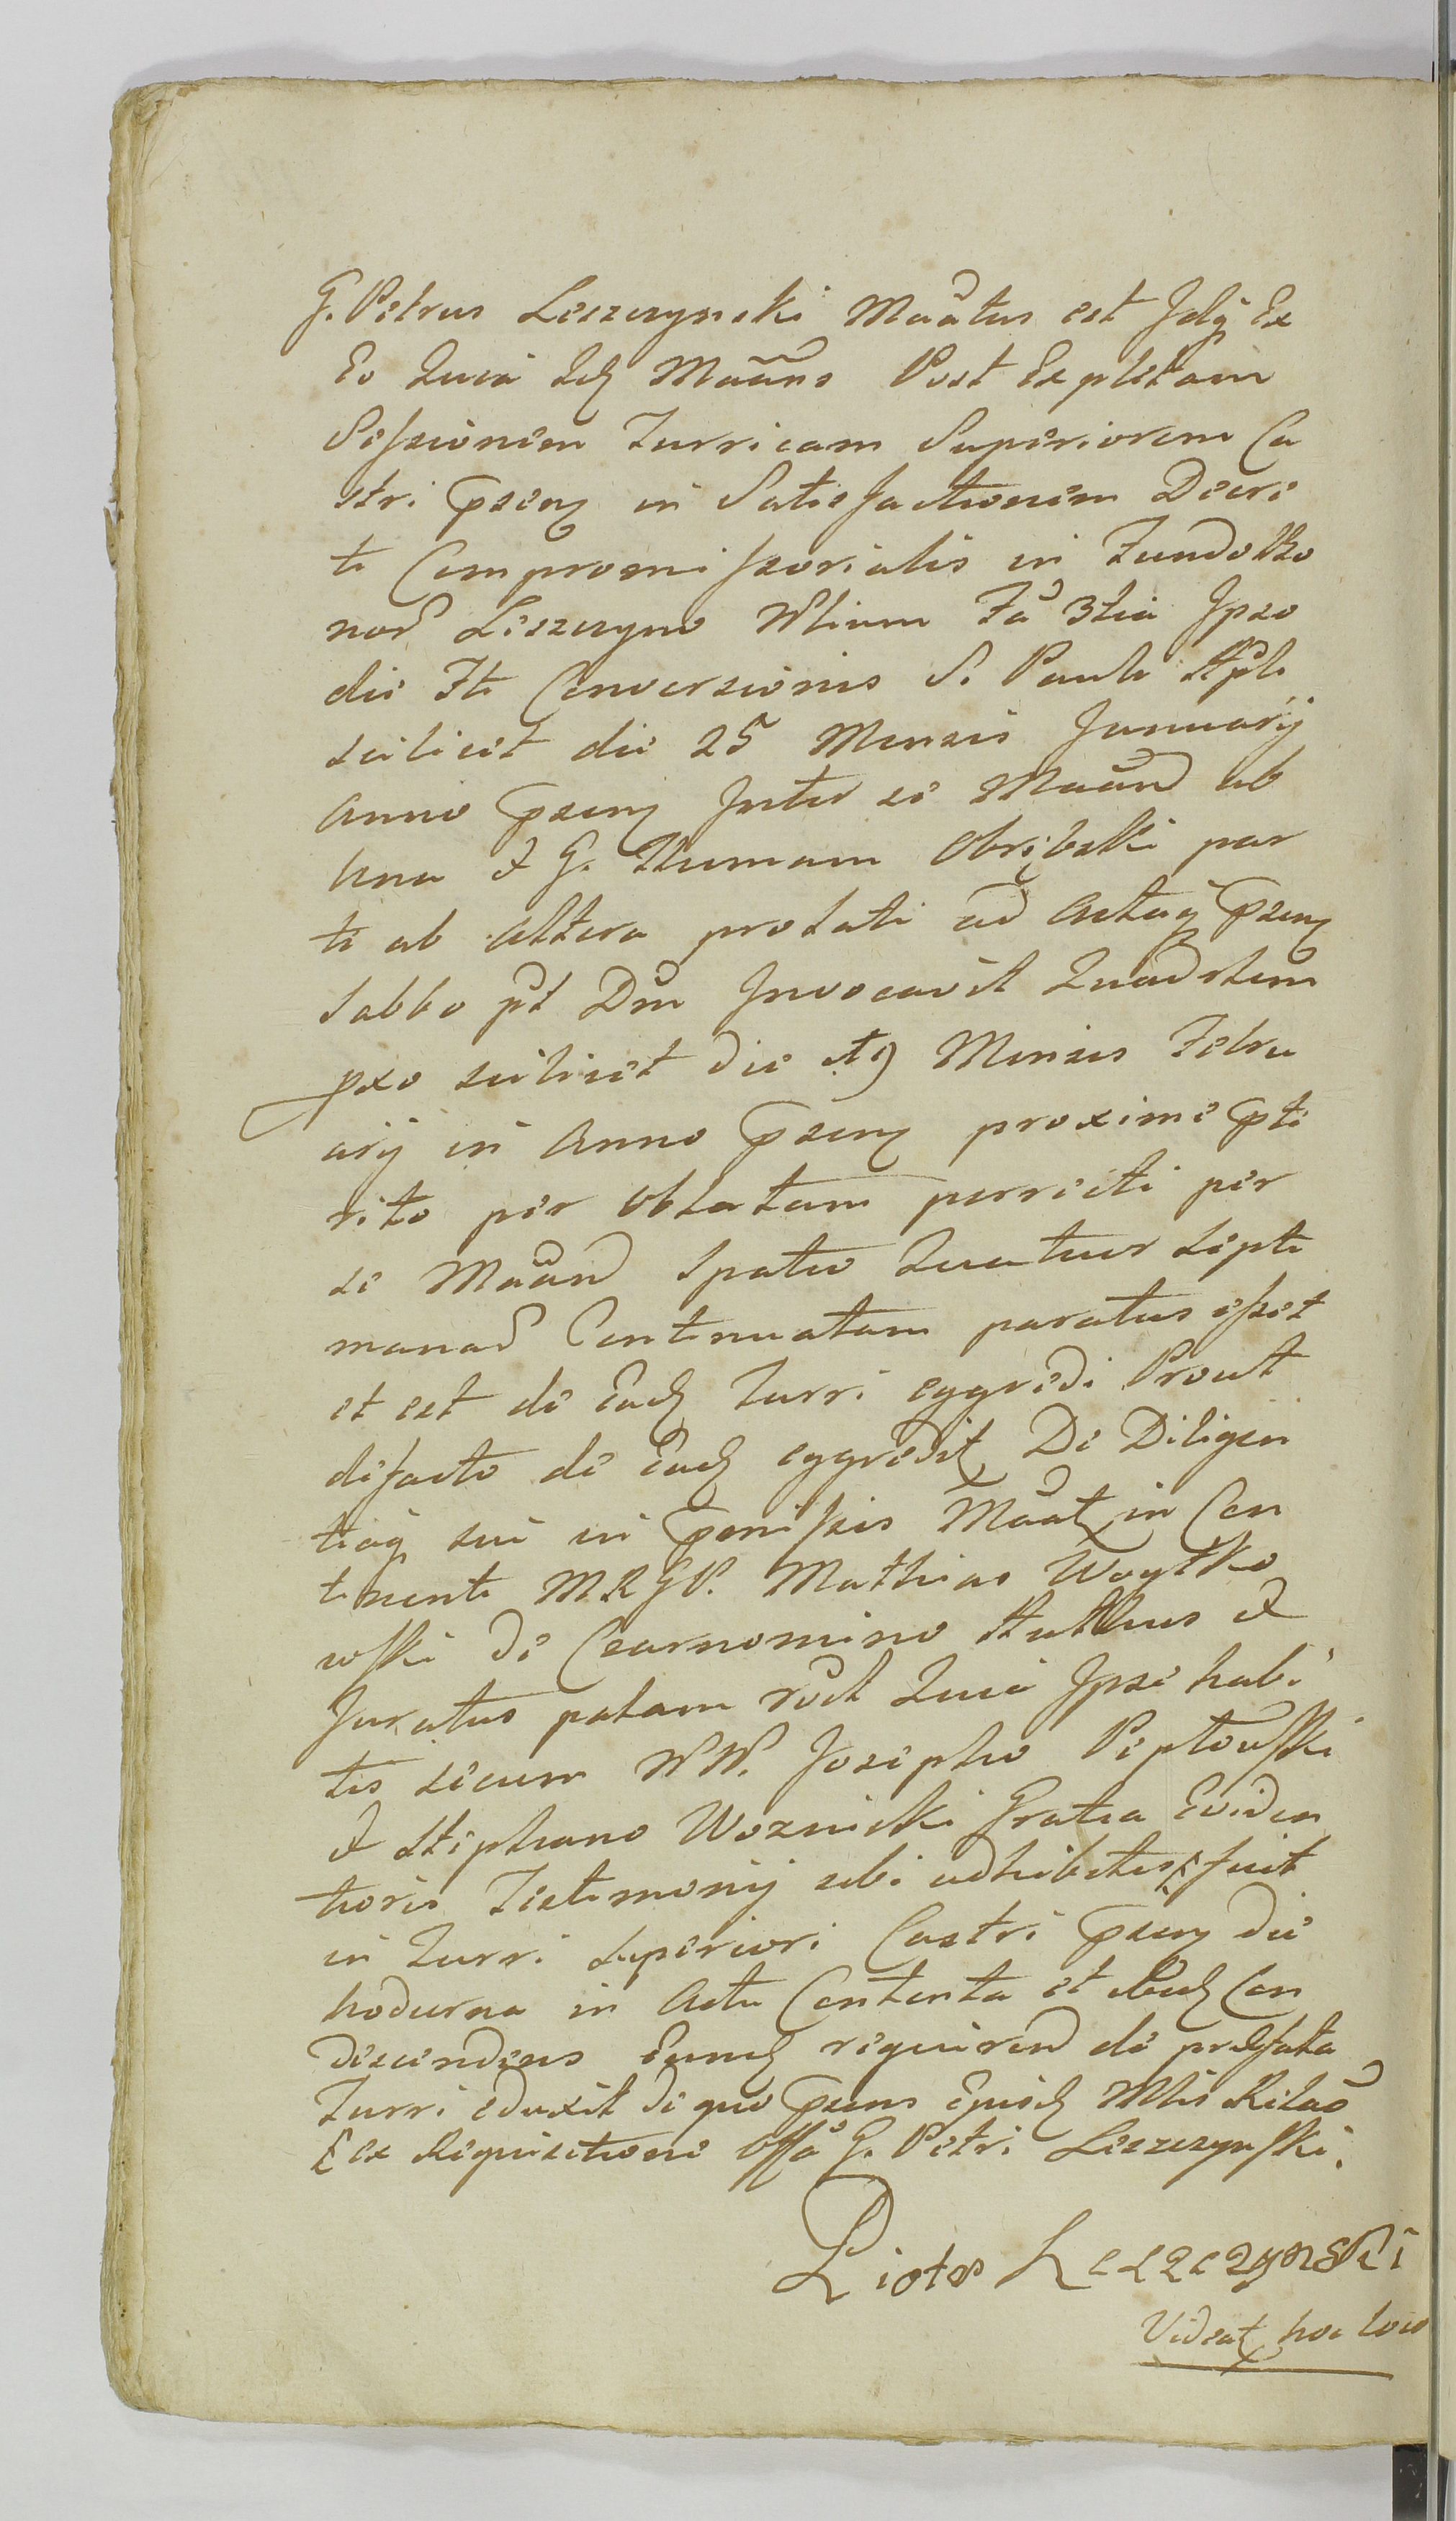 G. Petrus Leszczynski Maãtus est Idq̃ Ex
Eo Quia Idẽ Maãns Post Expletam
Seſsionem Turricam Superiorem Ca
stri p̃sen̨ in Satisfactionem Decre
ti Compromiſsorialis in Fundo
Leszczyno Fã 3tia Ipso
die Fti Conversionis S. Pauli Apli
scilicet die 25 Mensis Januarij
Anno p̃sen̨ Inter se Maãnd ab
Una & G. Thomam Obrębski par
te ab altera prolati ad Actaq̃ p̃sen̨
Sabbo pt Dm̃ Invocavit Quadrlem
pxo scilicet die 19 Mensis Febru
arij in Anno p̃sen̨ proxime p̃te
rito per Oblatam porrecti per
se Maãnd Spatio Quatuor Septi
manar̃ Continuatam paratus eſset
et est de Eadẽ Turri eggredi Prout
defacto de Eadẽ eggredit̃ De Diligen
tiaq̃ sui in p̃miſsis Maãt̃ in Con
tinenti M R G P. Mathias Woytko
wſki de Czarnomino &
Juratus palam rõt Quia Ipse habi
tis secum NN. Josepho Peptowſki
& Stephano Woznicki Gratia Eviden
tioris Testimonij sibi adhibitis fuit
in Turri Superiori Castri p̃sen̨ die
hodierna in Actu Contenta et Con
descendens Eundẽ requirend de præfata
Turri eduxit de quo p̃sens Ejusdẽ Mlis Relaõ
Ex Requisitione Offã G. Petri Leszczynſki.
Piotr Leszczynski
Videat̃ hoc loco